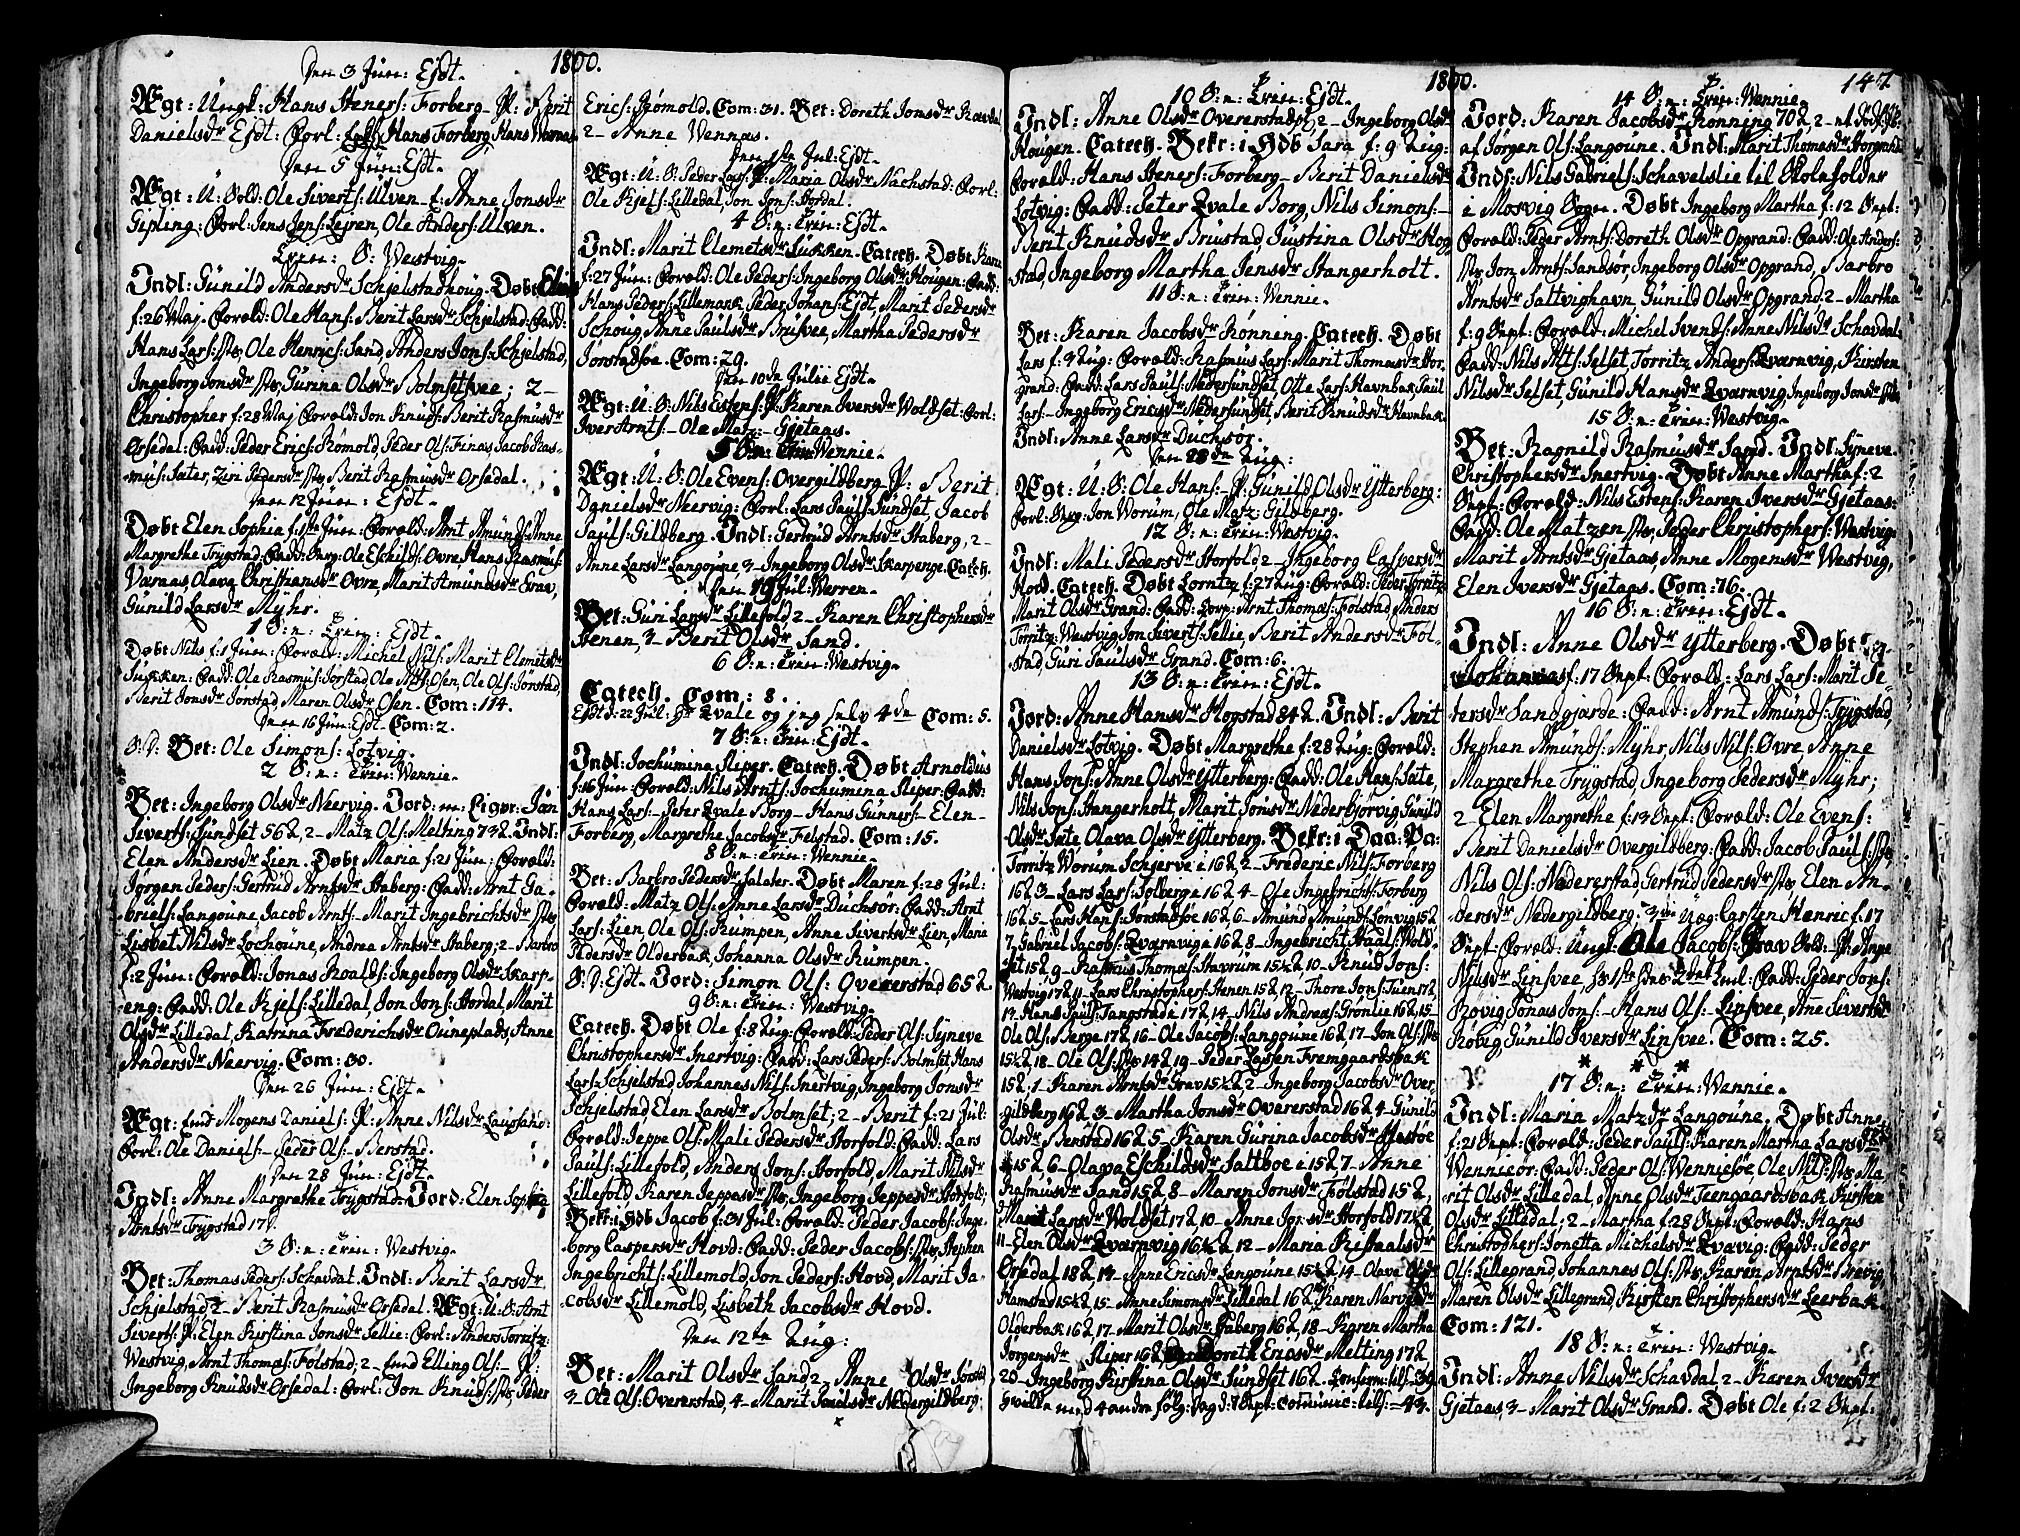 1800.
Den 3 Jun: Ejdt.
Ægt: Ungk: Hans Steners: Forberg P: Berit
Danielsdr Ejdt: Forl: Hans Forberg Hans
Den 5 Jun: Ejdt.
Ægt: U: Sold: Ole Siverts: Ulven f: Anne Jonsdr
Gipling: Forl: Jens Jens: Lejren, Ole Anders: Ulven.
Trin: S: Westvig.
Indl: Gunild Andersdr Schjelstadhoug. Døbt
f: 26 Maj. Foræld: Ole Hans: Berit Larsdr Schjelstad: Fadd:
Hans Lars: sts, Ole Henrics: Sand, Anders Jons: Schjelstad,
Ingeborg Jonsdr sts, Gurina Olsdr Bolmsetsvee; 2–
Christopher f: 28 Maj Foræld: Jon Knuds: Berit Rasmusdr
Orsedal: Fadd: Peder Erics: Rømold, Peder Ols: Finas, Jacob Ras-
mus: Sater, Ziri Pedersdr sts, Berit Rasmusdr Orsedal.
Den 12 Jun: Ejdt.
Døbt Elen Sophia f: 1ste Jun: Foræld: Arnt Amunds: Anne
Margrethe Trygstad: Fadd: Ole Eschilds: Ovre, Hans Rasmus:
Værnas, Olava Christiansdr Ovre, Marit Amundsdr Grav,
Gunild Larsdr Myhr.
1 S: n: Trin: Ejdt.
Døbt Nils f: 1 Jun: Foræld: Michel Nils: Marit Clemetsdr
Sukken: Fadd: Ole Rasmus: Jorstad, Ole Osen, Ole Ols: Jonstad,
Berit Jonsdr Jonstad, Maren Olsdr Osen. Com: 114.
Den 16 Jun: Ejdt. Com: 2.
S: D: Bet: Ole Simons: Lotvig.
2 S: n: Trin: Wennie.
Bet: Ingeborg Olsdr Neervig. Jord: m: Ligpr: Jan
Siverts: Sundset 56 2, 2– Matz Ols: Melting 73 2. Indl:
Elen Andersdr Lien. Døbt Maria f: 21 Jun: Foræld:
Jørgen Peders: Gertrud Arntsdr Staberg: Fadd: Arnt Ga-
briels: Langoune, Jacob Arnts– Marit Ingebrichtsdr sts,
Lisbet Nilsdr Lochoune, Andrea Arntsdr Staberg; 2– Barbro
f: 2 Jun: Foræld: Jonas Roalds: Ingeborg Olsdr Skarp-
eng: Fadd: Ole Kjels: Lilledal, Jon Jons: Hordal, Marit
Olsdr Lilledal, Katrina Frederichsdr Ouneplads, Anne
Andersdr Neervig. Com: 30.
Den 26 Jun: Ejdt.
Ægt: Mogens Daniels: P: Anne Nilsdr
Forl: Ole Daniels– Peder Ols– Berstad.
Den 28 Jun: Ejdt.
Indl: Anne Margrethe Trygstad. Jord: Elen Sophia
Arntsdr Trygstad
3 S: n: Trin: Westvig.
Bet: Thomas Peders: Schavdal. Indl: Berit Larsdr
Schjelstad, 2– Berit Rasmusdr Orsedal. Ægt: U: S: Arnt
Siverts: P: Elen Kirstina Jonsdr Sellie: Forl: Anders Torritz:
Westvig, Arnt Thomas: Folstad, 2– Elling Ols:– P:
Ingeborg Knudsdr Orsedal: Forl: Jon Knuds: sts, Peder
Erics: Rømold. Com: 31. Bet: Doreth Jonsdr
2– Anne Wennas.
Den 1ste Jul: Ejdt.
Ægt: U: S: Peder Lars: P: Maria Olsdr Nachstad: Forl:
Ole Kjels: Lilledal, Jon Jons: Hordal.
4 S: n: Trin: Ejdt.
Indl: Marit Clemetsdr Sukken. Catech. Døbt
f: 27 Jun: Foræld: Ole Peders: Ingeborg Olsdr Hougen: Fadd:
Hans Peders: Lillemark, Peder Johans: Ejdt, Marit Pedersdr
Schoug, Anne Paulsdr Brusvee, Martha Pedersdr
Jonstadsøe. Com: 29.
Den 10de Julii Ejdt.
Ægt: U: S: Nils Estens: P: Karen Iversdr Woldset: Forl:
Iver Arnts:– Ole Matz:– Gjetaas.
5 S: n: Trin: Wennie.
Ægt: U: S: Ole Evens: Overgildberg P: Berit
Danielsdr Neervig: Forl: Lars Pauls: Sundset, Jacob
Pauls: Gildberg. Indl: Gertrud Arntsdr Staberg, 2–
Anne Larsdr Langoune, 3– Ingeborg Olsdr Skarpenge. Catech.
Den 19 Jul: Werren.
Bet: Guri Larsdr Lillefold, 2– Karen Christophersdr
Stenen, 3– Berit Olsdr Sand.
6 S: n: Trin: Westvig.
Catech. Com: 8.
Ejdt d: 22 Jul: Hr Zvale og jeg selv 4de Com: 5.
7 S: n: Trin: Ejdt.
Indl: Jochumina Sleper. Catech. Døbt Arnoldus
f: 15 Jun: Foræld: Nils Arnts: Jochumina Sleper: Fadd:
Hans Lars:– Peter Zvale Borg– Hans Gunners– Elen–
Forberg, Margrethe Jacobsdr Felstad. Com: 15.
8 S: n: Trin: Wennie.
Bet: Barbro Pedersdr Salater. Døbt Maren f: 28 Jul:
Foræld: Matz Ols: Anne Larsdr Duchsør: Fadd: Arnt
Lars: Lien, Ole Ols: Rumpen, Anne Sivertsdr Lien, Maria
Pedersdr Olderbak, Johanna Olsdr Rumpen.
S: D: Ejdt. Jord: Simon Ols: Overerstad 65 2.
9 S: n: Trin: Westvig.
Catech. Døbt Ole f: 8 Aug: Foræld: Peder Ols: Syneve
Christophersdr Inertvig: Fadd: Lars Peders: Bolmset, Hans
Lars: Schjelstad, Johannes Nils: Inertvig, Ingeborg Jonsdr
Schjelstad, Elen Larsdr Bolmset; 2– Berit f: 21 Jul:
Foræld: Jeppe Ols: Mali Pedersdr Horfold: Fadd: Lars
Pauls: Lillefold, Anders Jons: Horfold, Marit Nilsdr
Lillefold, Karen Jeppesdr sts, Ingeborg Jeppesdr Horfold;
Bekr: i Hdb Jacob f: 31 Jul: Foræld: Peder Jacobs: Inge-
borg Caspersdr Hovd: Fadd: Peder Jacobs: sts, Stephen
Ingebrichts: Lillemold, Jon Peders: Hovd, Marit Ja-
cobsdr Lillemold, Lisbeth Jacobsdr Hovd.
Den 12te Aug:
Bet: Marit Olsdr Sand, 2– Anne Olsdr
3– Ole Ols: Overerstad, 4– Marit Danielsdr Nedergildberg.
1800. 147
10 S: n: Trin: Ejdt.
Indl: Anne Olsdr Overerstad, 2– Ingeborg Olsdr
Hougen. Catech. Bekr: i Hdb Sara f: 9 Aug:
Foræld: Hans Steners: Forberg– Berit Danielsdr
Lotvig: Fadd: Peter Zvale Borg, Nils Simons:–
Berit Knudsdr Brustad, Justina Olsdr Hog-
stad, Ingeborg Martha Jensdr Stangerholt.
11 S: n: Trin: Wennie.
Bet: Karen Jacobsdr Rønning. Catech. Døbt
Lars f: 3 Aug: Foræld: Rasmus Lars: Marit Thomasdr Hor-
grand: Fadd: Lars Pauls: Nedersundset, Otte Lars: Havnbak, Paul
Lars:– Ingeborg Ericsdr Nedersundset, Berit Knudsdr Havnbak.
Indl: Anne Larsdr Duchsør.
Den 28de Aug:
Ægt: U: S: Ole Hans:– P: Gunild Olsdr Ytterberg:
Forl: Jon Worum, Ole Matz: Gildberg.
12 S: n: Trin: Westvig.
Indl: Mali Pedersdr Horfold, 2– Ingeborg Caspersdr
Hovd. Catech. Døbt Lorntz f: 27 Aug: Foræld: Peder Torritz:
Marit Olsdr Grand: Fadd: Arnt Thomas: Folstad, Anders
Torritz: Westvig, Jon Siverts: Sellie, Berit Andersdr Fol-
stad, Guri Paulsdr Grand. Com: 6.
13 S: n: Trin: Ejdt.
Jord: Anne Hansdr Hogstad 84 2. Indl: Berit
Danielsdr Lotvig. Døbt Margrethe f: 28 Aug: Foræld:
Hans Jons: Anne Olsdr Ytterberg: Fadd: Ole Hans: Sate,
Nils Jons: Stangerholt, Marit Jonsdr Nederbjorvig, Gunild
Olsdr Sate, Olava Olsdr Ytterberg. Bekr: i Daa: Pa:
Torritz Worum Schjerve i 16 2, 2– Frederic Nils: Forberg
16 2 3– Lars Lars: Tolberg i 16 2 4– Ole Ingebricht: Forberg
16 2 5– Lars Hans: Jonstadsøe 16 2 6– Amund Amunds: Lonvig 15 2
7, Gabriel Jacobs: Zværnvig i 16 2 8– Ingebricht Staals: Wold-
set 15 2 9– Rasmus Thomas: Stavrum 15½ 2, 10– Knud Jons:
Westvig 17 2 11– Lars Christophers: Stenen 15 2 12– Thore Jons: Tuen 17 2
13– Hans Pauls: Tangstade 17 2, 14– Nils Andreas: Grønlie 16 2, 15–
Ole Ols: Serg 17 2, 16– Ole Jacobs: Langoune 16 2, 17– Jon Ols: sts
15½ 2, 18– Ole Ols: sts 14 2, 19– Peder Larsen Fremgaardsbak
15 2. 1– Karen Arntsdr Grav 15½ 2 2– Ingeborg Jacobsdr Over-
gildberg 16 2 3– Martha Jonsdr Overerstad 16 2 4– Gunild
Olsdr Berstad 16 2 5– Karen Gurina Jacobsdr Hestøe
i 15 2 6– Olava Eschildsdr Saltboe i 15 2 7– Anne
Rasmusdr Sand 15 2 8– Maren Jonsdr Folstad 15 2,
9– Marit Larsdr Woldset 17 2, 10– Anne Jonsdr Horfold 17½ 2,
11– Elen Olsdr Zværnvig 16½ 2, 12– Maria Ristaalsdr
Orsedal 18 2, 13– Anne Ericsdr Langoune 15½ 2, 14– Olave Olsdr
Hamstad 15½ 2, 15– Anne Simonsdr Lilledal 16 2, Karen
Olderbak 16 2, 17– Marit Olsdr Staberg 16 2, 18– Karen Martha
Jorgensdr Sleper 16 2 Doreth Ericsdr Melting 17 2
20– Ingeborg Kirstina Olsdr Sundset 16 2.
hvilke med 4 andre følg: Dag d: 8 Sept: communic: tils: =43.
1800.
14 S: n: Trin: Wennie.
Jord: Karen Jacobsdr Rønning 70 2, 2–
af Jørgen Ols: Langoune. Indl: Marit Thomasdr Horgrand
Inds: Nils Gabriels: Schavelslie til Skolefolder
i Mosvig Sogn. Døbt Ingeborg Martha f: 12 Sept:
Foræld: Peder Arnts: Doreth Olsdr Opgrand: Fadd: Ole Anders:
sts, Jon Arnts: Sandsør, Ingeborg Olsdr Opgrand, Barbro
Arntsdr Saltvighavn, Gunild Olsdr Opgrand, 2– Martha
f: 9 Sept: Foræld: Michel Svends: Anne Nilsdr Schavdal:
Fadd: Nils Selset, Torritz Anders: Zværnvig, Kirsten
Nilsdr Selset, Gunild Hansdr Zværnvig, Ingeborg Jonsdr sts.
15 S: n: Trin: Westvig.
Bet: Ragnild Rasmusdr Sand. Indl: Syneve
Christophersdr Inertvig. Døbt Anne Martha f: 2
Sept: Foræld: Nils Estens: Karen Iversdr Gjetaas:
Fadd: Ole Matzen sts, Peder Christophers: Westvig,
Marit Arntsdr Gjetaas, Anne Mogensdr Westvig,
Elen Iversdr Gjetaas. Com: 76.
16 S: n: Trin: Ejdt.
Indl: Anne Olsdr Ytterberg. Døbt
Johannes f: 17 Sept: Foræld: Lars Lars: Marit Pe-
tersdr Sandgjarde: Fadd: Arnt Amunds: Trygstad,
Stephen Amunds: Myhr, Nils Nils: Ovre, Anne
Margrethe Trygstad, Ingeborg Pedersdr Myhr;
2– Elen Margrethe f: 13 Sept: Foræld: Ole Evens:
Berit Danielsdr Overgildberg: Fadd: Jacob Pauls: sts,
Nils Ols: Nedererstad, Gertrud Pedersdr sts, Elen An-
dersdr Nedergildberg. 3die Uæg: Carsten Henric f: 17
Sept: Foræld: Ungk: Ole Jacobs: Grav Sold: P: Anne
Nilsdr Linsvee, Fadd: Peder Jons:
Røvig, Jonas Jons:– Hans Ols:– Linsvee, Ane Sivertsdr
Røbig, Gunild Iversdr Linsvee. Com: 25.
17 S: n: Trin: Wennie.
Indl: Maria Matzdr Langoune. Døbt Anne
f: 21 Sept: Foræld: Peder Pauls: Karen Martha Larsdr
Wennieør: Fadd: Peder Ols: Wenniesøe, Ole Nils: sts, Ma-
rit Olsdr Lilledal, Anne Olsdr Teengaardsbak, Kirsten
Olsdr Lilledal; 2– Martha f: 28 Sept: Foræld: Hans
Christophers: Jonetta Michelsdr Zvavig: Fadd: Peder
Ols: Lillegrand, Johannes Ols: sts, Karen Arntsdr Brevig,
Maren Olsdr Lillegrand, Kirsten Christophersdr Leerbak.
Com: 121.
18 S: n: Trin: Westvig.
Indl: Anne Nilsdr Schavdal, 2– Karen Iversdr
Gjetaas, 3– Marit Olsdr Grand. Døbt Ole f: 2 Sept: